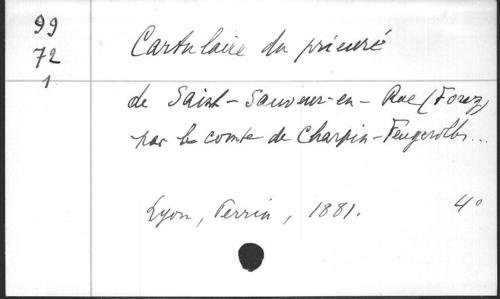 99
72
1
Cartulaire du prieuré
de Saint-Sauveur-en-Rue (Forez)
par le comte de Charpin-Feugerolles...
Lyon, Perrin, 1881. 4°